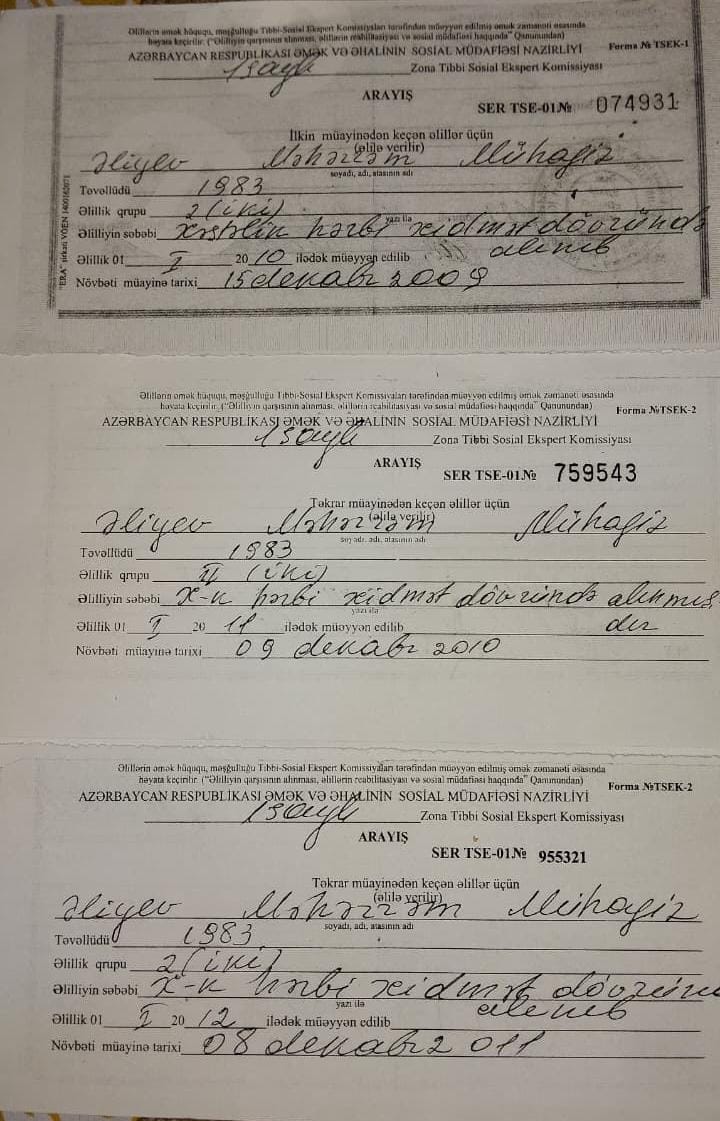 Əlillərin əmək hüququ, məşğulluğu Tibbi-Sosial Ekspert Komissiyaları tərəfindən müəyyən edilmiş əmək zəmanəti əsasında
həyata keçirilir. ("Əlilliyin qarşısının alınması, əlillərin reabilitasiyası və sosial müdafiəsi haqqında" Qanunundan)
AZƏRBAYCAN RESPUBLİKASI ƏMƏK VƏ ƏHALİNİN SOSİAL MÜDAFİƏSİ NAZİRLİYİ Forma № TSEK-1
Zona Tibbi Sosial Ekspert Komissiyası
ARAYIŞ
SER TSE-01.№ 074931
İlkin müayinədən keçən əlillər üçün
(əlilə verilir)
Əliyev Məhərrəm Mühafiz
soyadı, adı, atasının adı
Təvəllüdü 1983
Əlillik qrupu 2 (iki)
yazı ilə
Əlilliyin səbəbi xəstəlik hərbi xidmət dövründə
alınıb
Əlillik 01 I 2010 ilədək müəyyən edilib
Növbəti müayinə tarixi 15 dekabr 2009
"ERA" şirkəti VÖEN 1400162071
Əlillərin əmək hüququ, məşğulluğu Tibbi-Sosial Ekspert Komissiyaları tərəfindən müəyyən edilmiş əmək zəmanəti əsasında
həyata keçirilir. ("Əlilliyin qarşısının alınması, əlillərin reabilitasiyası və sosial müdafiəsi haqqında" Qanunundan)
AZƏRBAYCAN RESPUBLİKASI ƏMƏK VƏ ƏHALİNİN SOSİAL MÜDAFİƏSİ NAZİRLİYİ Forma №TSEK-2
Zona Tibbi Sosial Ekspert Komissiyası
ARAYIŞ
SER TSE-01.№ 759543
Təkrar müayinədən keçən əlillər üçün
(əlilə verilir)
Əliyev Məhərrəm Mühafiz
soyadı, adı, atasının adı
Təvəllüdü 1983
Əlillik qrupu II (iki)
Əlilliyin səbəbi x-k hərbi xidmət dövründə alınmış
yazı ilə
dır
Əlillik 01 I 2011 ilədək müəyyən edilib
Növbəti müayinə tarixi 09 dekabr 2010
Əlillərin əmək hüququ, məşğulluğu Tibbi-Sosial Ekspert Komissiyaları tərəfindən müəyyən edilmiş əmək zəmanəti əsasında
həyata keçirilir. ("Əlilliyin qarşısının alınması, əlillərin reabilitasiyası və sosial müdafiəsi haqqında" Qanunundan)
AZƏRBAYCAN RESPUBLİKASI ƏMƏK VƏ ƏHALİNİN SOSİAL MÜDAFİƏSİ NAZİRLİYİ Forma №TSEK-2
Zona Tibbi Sosial Ekspert Komissiyası
ARAYIŞ
SER TSE-01.№ 955321
Təkrar müayinədən keçən əlillər üçün
(əlilə verilir)
Əliyev Məhərrəm Mühafiz
soyadı, adı, atasının adı
Təvəllüdü 1983
Əlillik qrupu 2 (iki)
Əlilliyin səbəbi x-k hərbi xidmət dövründə
yazı ilə
alınıb
Əlillik 01 I 2012 ilədək müəyyən edilib
Növbəti müayinə tarixi 08 dekabr 2011